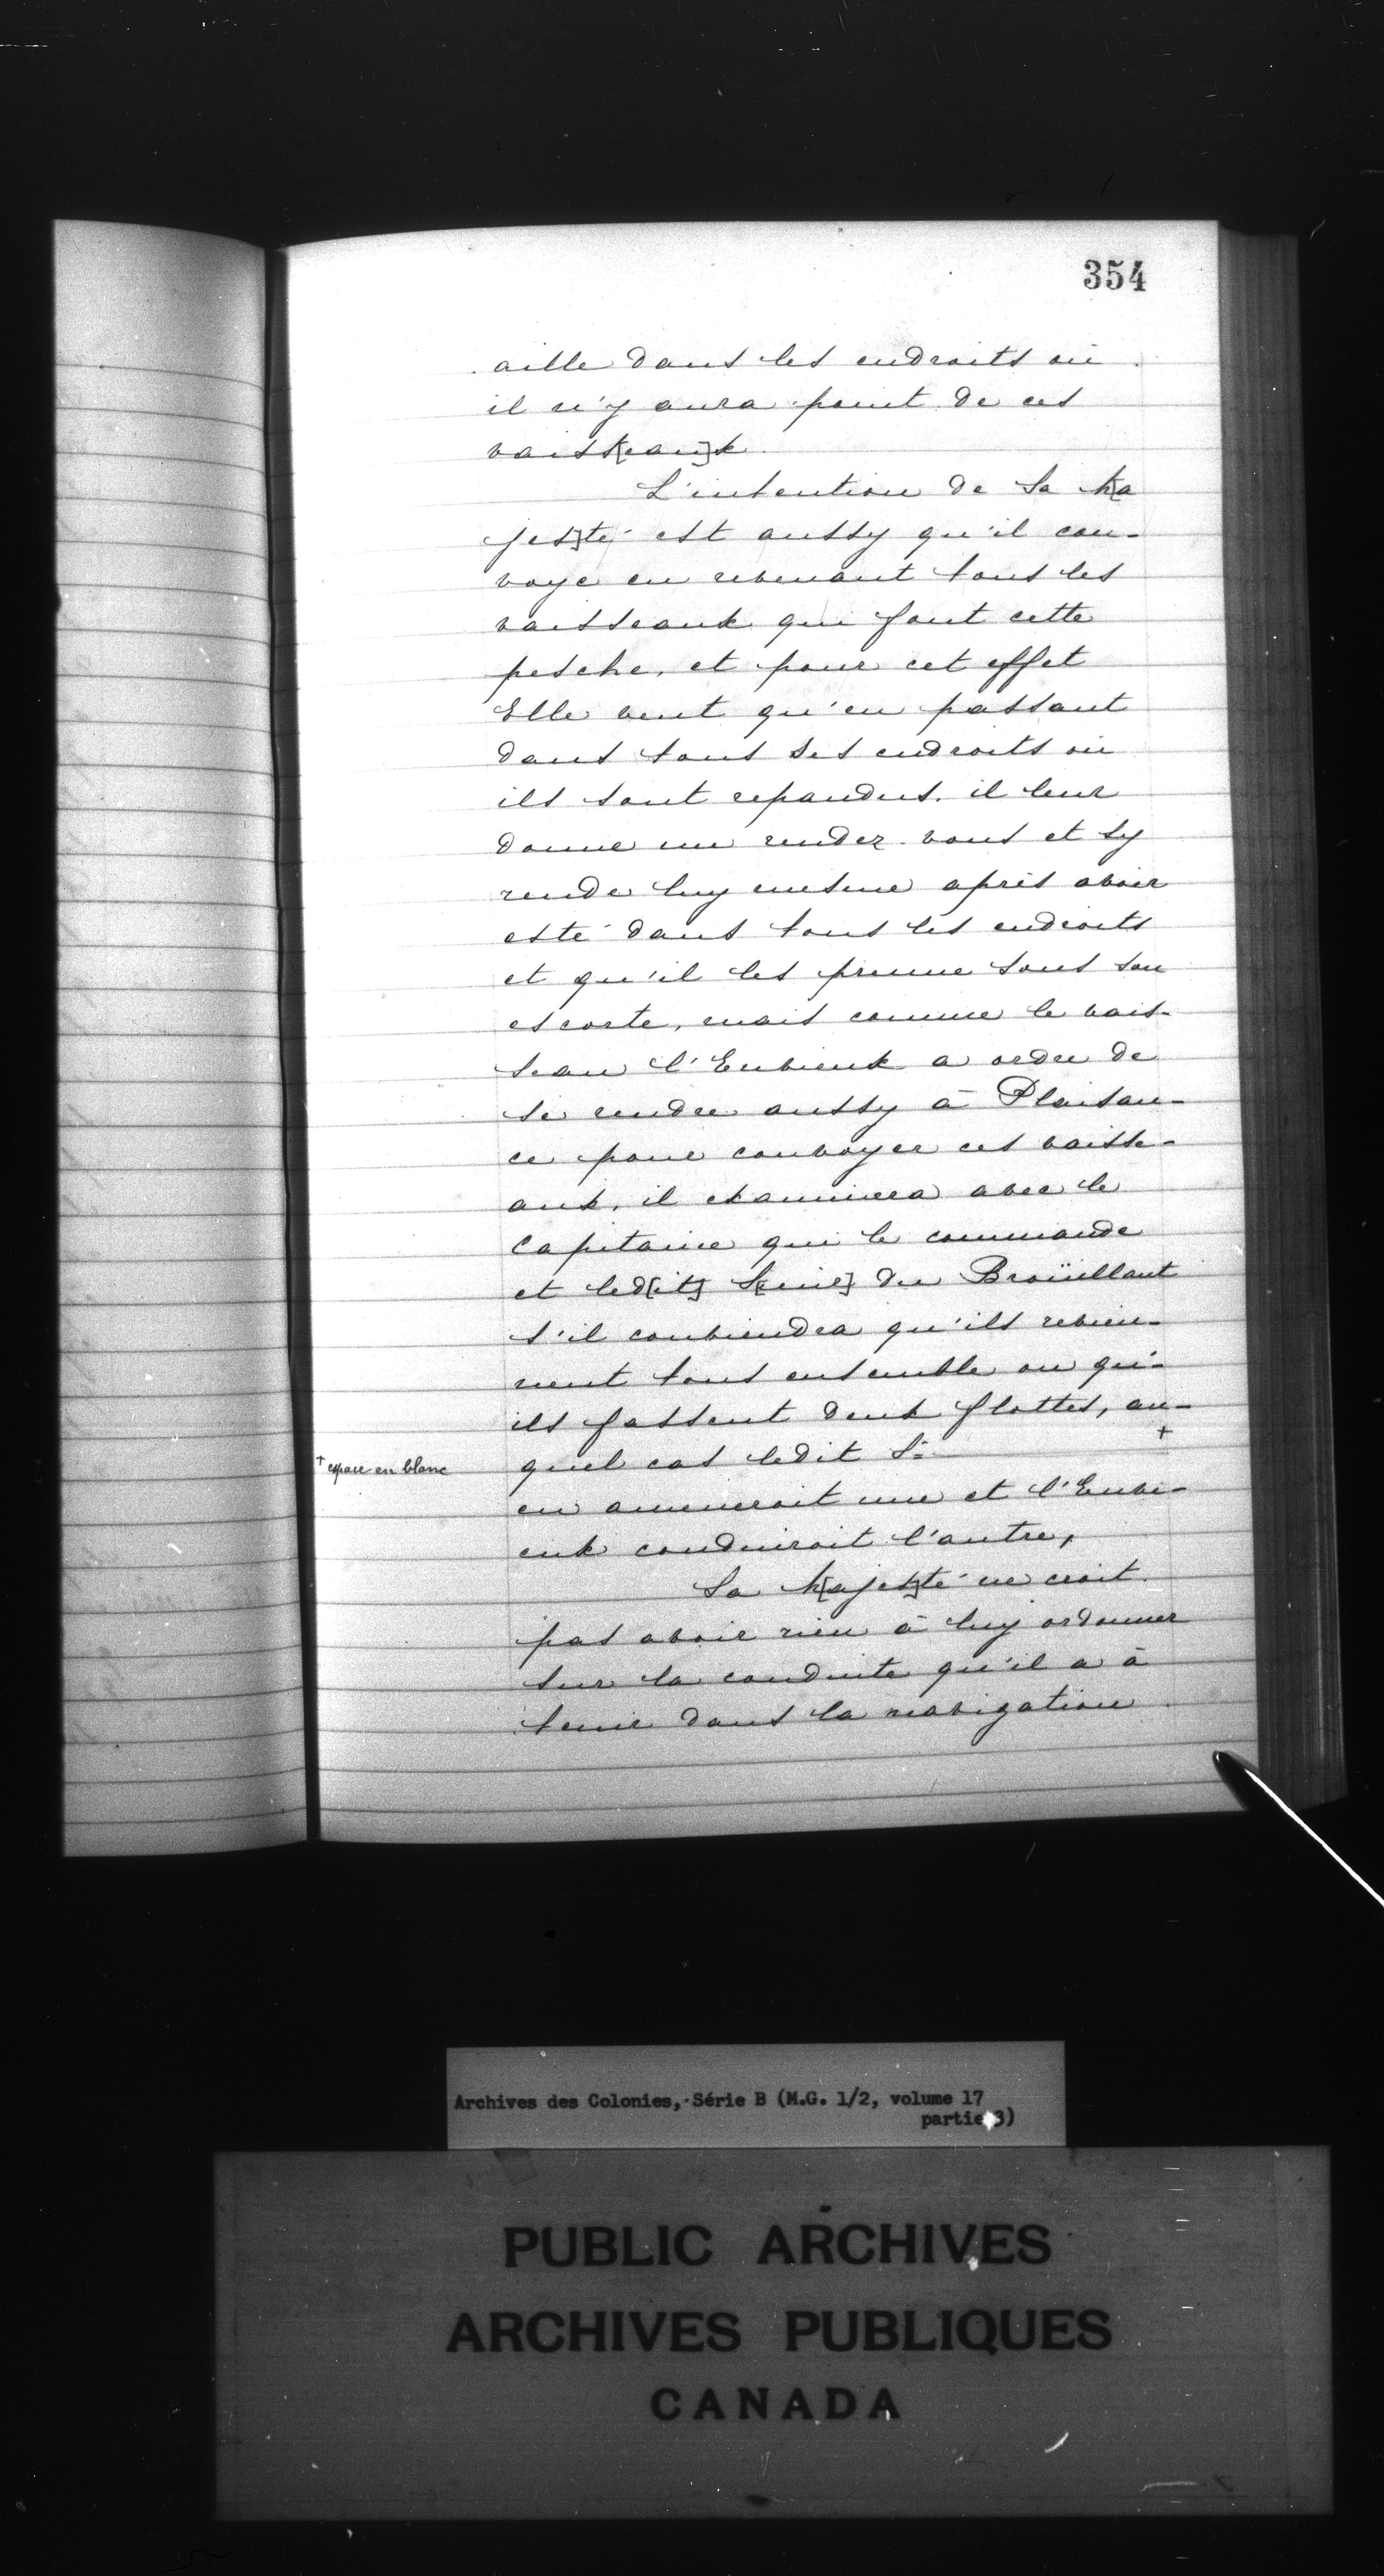 354
aille dans les endroits où
il n'y aura point de ces
vaiss[eau]x.
L'intention de Sa M[a
jes]té est aussy qu'il con-
voye en revenant tous les
vaisseaux qui font cette
pesche, et pour cet effet
Elle veut qu'en passant
dans tous ses endroits où
ils sont repandus, il leur
donne un rendez-vous et sy
rende luy mesme après avoir
esté dans tous les endroits
et qu'il les prenne sous son
escorte, mais comme le vais-
seau l'Envieux a ordre de
se rendre aussy à Plaisan-
ce pour convoyer ces vaisse-
aux, il examinera avec le
Capitaine qui le commande
et led[it] S[ieur] du Broüillant
s'il conviendra qu'ils revien-
nent tous ensemble ou qu'-
ils fassent deux flottes, au-
quel cas ledit Sr +
+ espace en blanc
en ameneroit une et l'Envi-
eux conduiroit l'autre,
Sa M[ajes]té ne croit
pas avoir rien à luy ordonner
sur la conduite qu'il a à
tenir dans la navigation
Archives des Colonies, Série B (M.G. 1/2, volume 17
partie 3)
PUBLIC ARCHIVES
ARCHIVES PUBLIQUES
CANADA